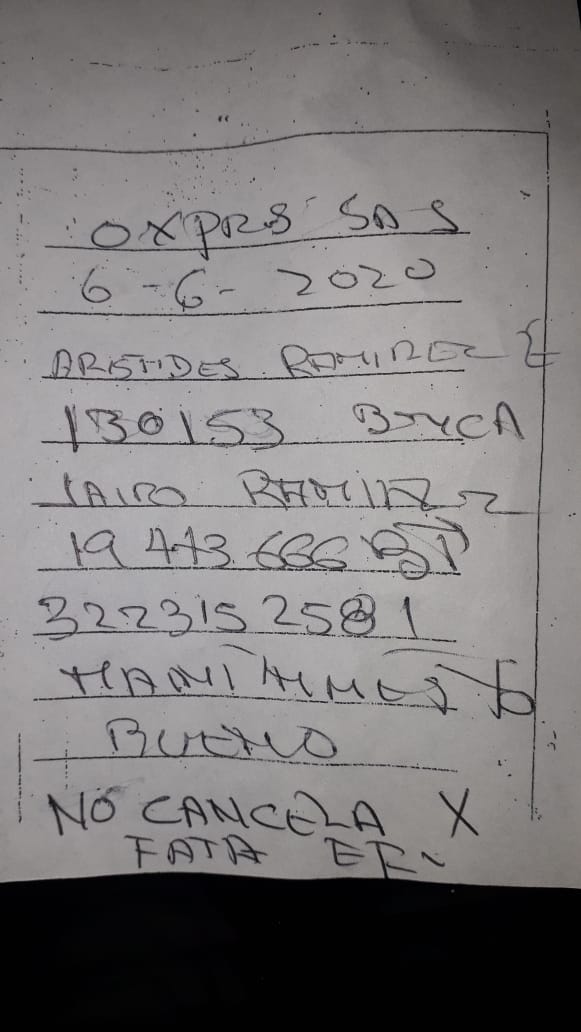 OXPRS SAS
6-6-2020
ARISTIDES RAMIREZ
130153 BMCA
JAIRO RAMIREZ
19 473.666 BT
3223152581
BUENO
NO CANCELA X
FATA EF